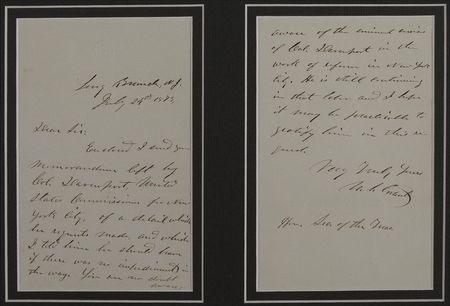 Long Branch, N.J.
July 28th 1873
Dear Sir:
Enclosed I send you
memorandum left by
Col. Davenport, United
States Commissioner for New
York City, of a detail which
he requests made, and which
I told him he should have
if there was no impediment in
the way. You are no doubt
aware
aware of the eminent service
of Col. Davenport in the
work of reform in New York
City. He is still continuing
in that labor and I hope
it may be practicable to
gratify him in this re-
quest.
Very Truly Yours
U. S. Grant
Hon. Sec. of the Treas.